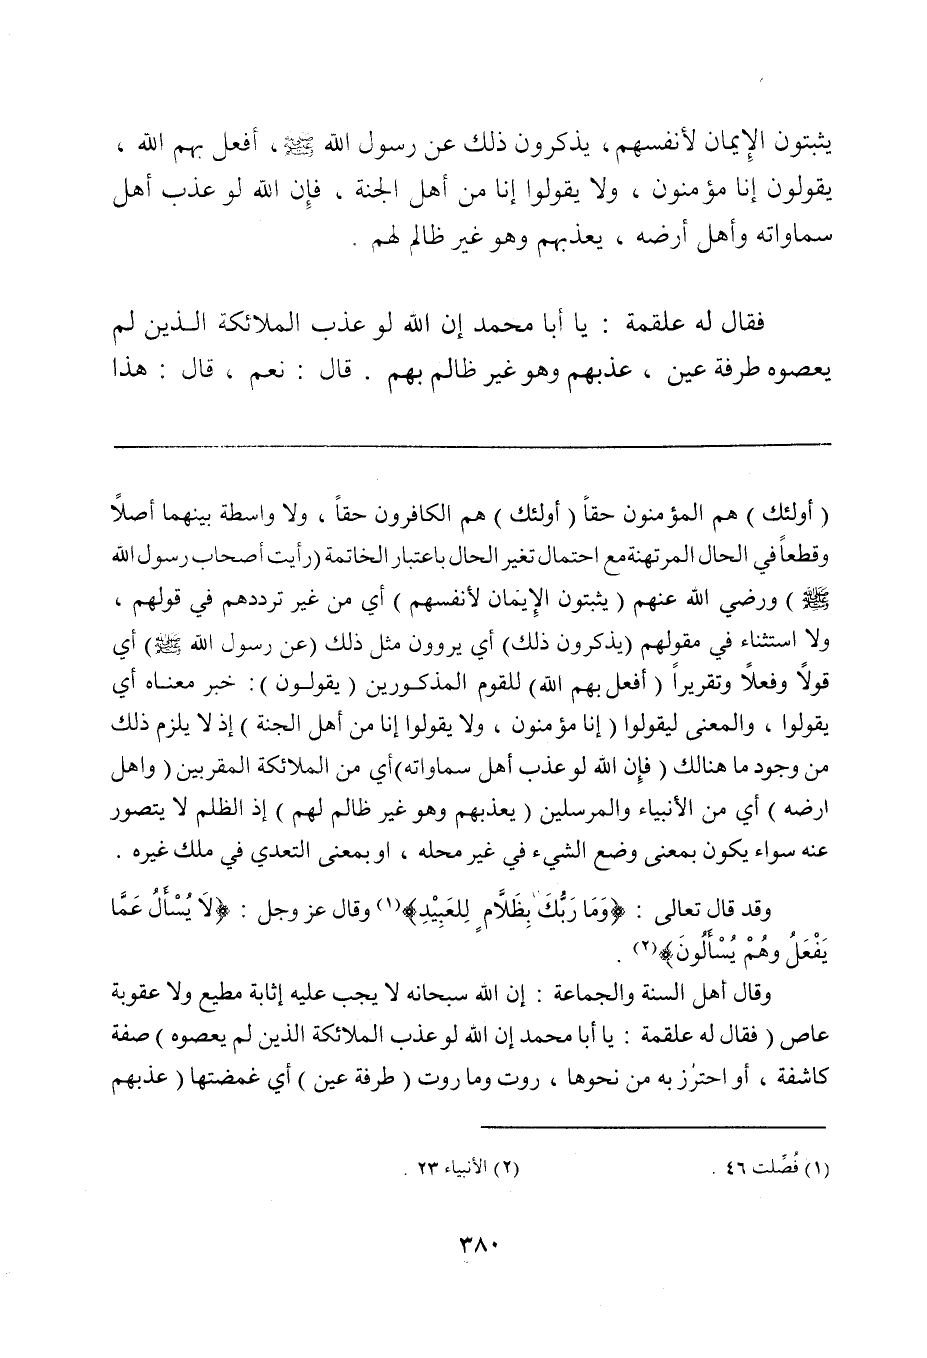 يثبتون الإيمان لأنفسهم، يذكرون ذلك عن رسول الله ﷺ، أفعل بهم الله ،
يقولون إنا مؤمنون ، ولا يقولوا إنا من أهل الجنة ، فإن الله لو عذب أهل
سماواته وأهل أرضه ، يعذبهم وهو غير ظالم لهم .
فقال له علقمة : يا أبا محمد إن الله لو عذب الملائكة الذين لم
يعصوه طرفة عين ، عذبهم وهو غير ظالم بهم . قال : نعم ، قال : هذا
( أولئك ) هم المؤمنون حقاً ( أولئك ) هم الكافرون حقاً ، ولا واسطة بينهما أصلاً
وقطعاً في الحال المرتهنة مع احتمال تغير الحال باعتبار الخاتمة (رأيت أصحاب رسول الله
ﷺ ) ورضي الله عنهم ( يثبتون الإيمان لأنفسهم ) أي من غير ترددهم في قولهم ،
ولا استثناء في مقولهم (يذكرون ذلك) أي يروون مثل ذلك (عن رسول الله ﷺ) أي
قولاً وفعلاً وتقريراً ( أفعل بهم الله) للقوم المذكورين ( يقولون ): خبر معناه أي
يقولوا ، والمعنى ليقولوا ( إنا مؤمنون ، ولا يقولوا إنا من أهل الجنة ) إذ لا يلزم ذلك
من وجود ما هنالك ( فإن الله لو عذب أهل سماواته)أي من الملائكة المقربين ( واهل
ارضه ) أي من الأنبياء والمرسلين ( يعذبهم وهو غير ظالم لهم ) إذ الظلم لا يتصور
عنه سواء يكون بمعنى وضع الشيء في غير محله ، او بمعنى التعدي في ملك غيره .
وقد قال تعالى : ﴿وَمَا رَبُّكَ بِظَلَّامٍ لِلعَبِيْدِ﴾(١) وقال عز وجل : ﴿لَا يُسْأَلُ عَمَّا
يَفْعَلُ وهُمْ يُسْأَلُونَ﴾(٢) .
وقال أهل السنة والجماعة : إن الله سبحانه لا يجب عليه إثابة مطيع ولا عقوبة
عاص ( فقال له علقمة : يا أبا محمد إن الله لو عذب الملائكة الذين لم يعصوه ) صفة
كاشفة ، أو احترز به من نحوها ، روت وما روت ( طرفة عين ) أي غمضتها ( عذبهم
(١) فُصِّلت ٤٦ . (٢) الأنبياء ٢٣ .
٣٨٠